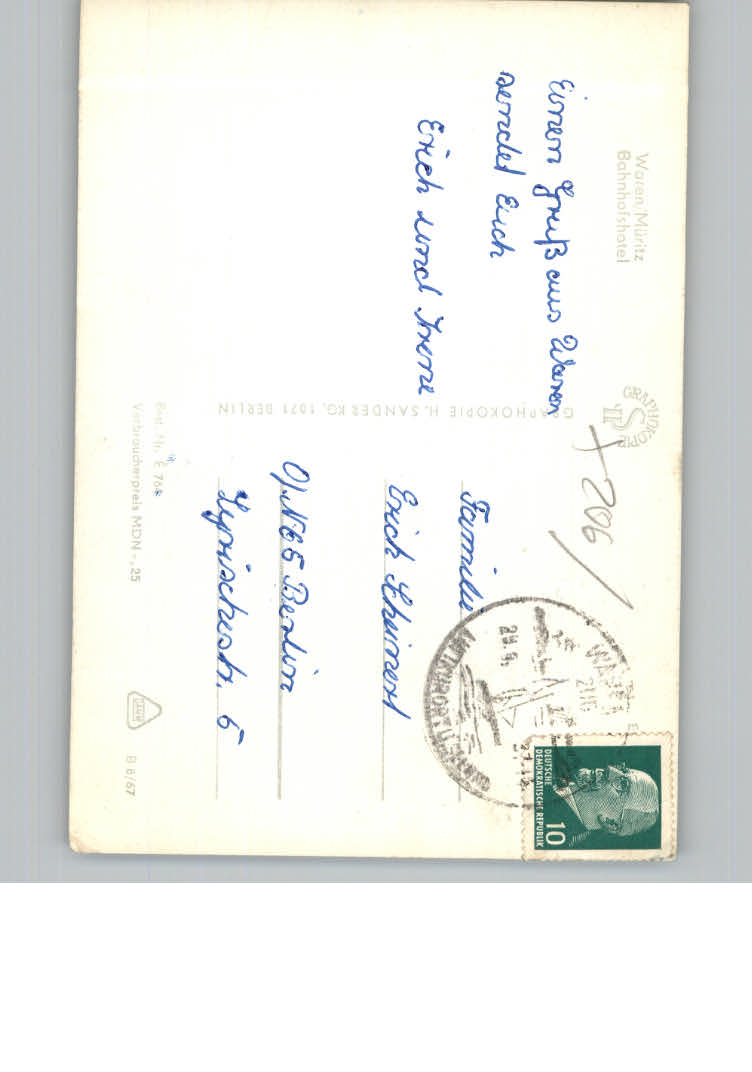 Waren/Müritz
Bahnhofshotel
Einen Gruß aus Waren
sendet Euch
Erich und Irene
GRAPHOKOPIE
GRAPHOKOPIE H. SANDER KG, 1071 BERLIN
Best.-Nr. E 764
Verbraucherpreis MDN -,25
+206/
Familie
Erich
0/N 65 Berlin
5
LUFTKURORT
DEUTSCHE
DEMOKRATISCHE REPUBLIK
10
B 8/67